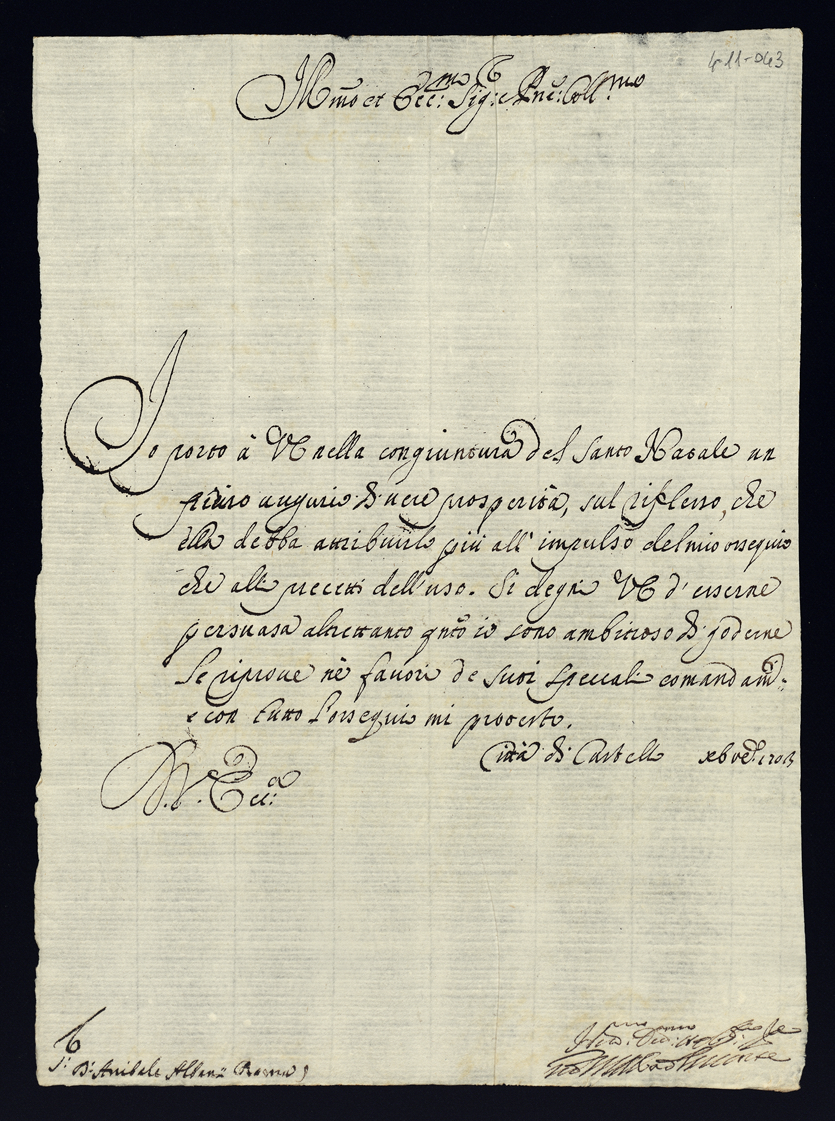 4-11-043
Ill.mo et Ecc.mo Sig.e P.ne Coll.mo
Io porto à VE nella congiuntura del Santo Natale un
augurio di vere prosperità, sul riflesso, che
ella debba attribuirlo più all'impulso del mio ossequio
che alli precetti dell'uso. Si degni VE d'esserne
persuasa altrettanto qnto io sono ambitioso di goderne
le riprove nè favori de suoi speciali comandam.ti
e con tutto l'ossequio mi protesto.
Città di Castello xbre 1703
D. V. Ecc.a
S.r D. Anibale Albani Roma